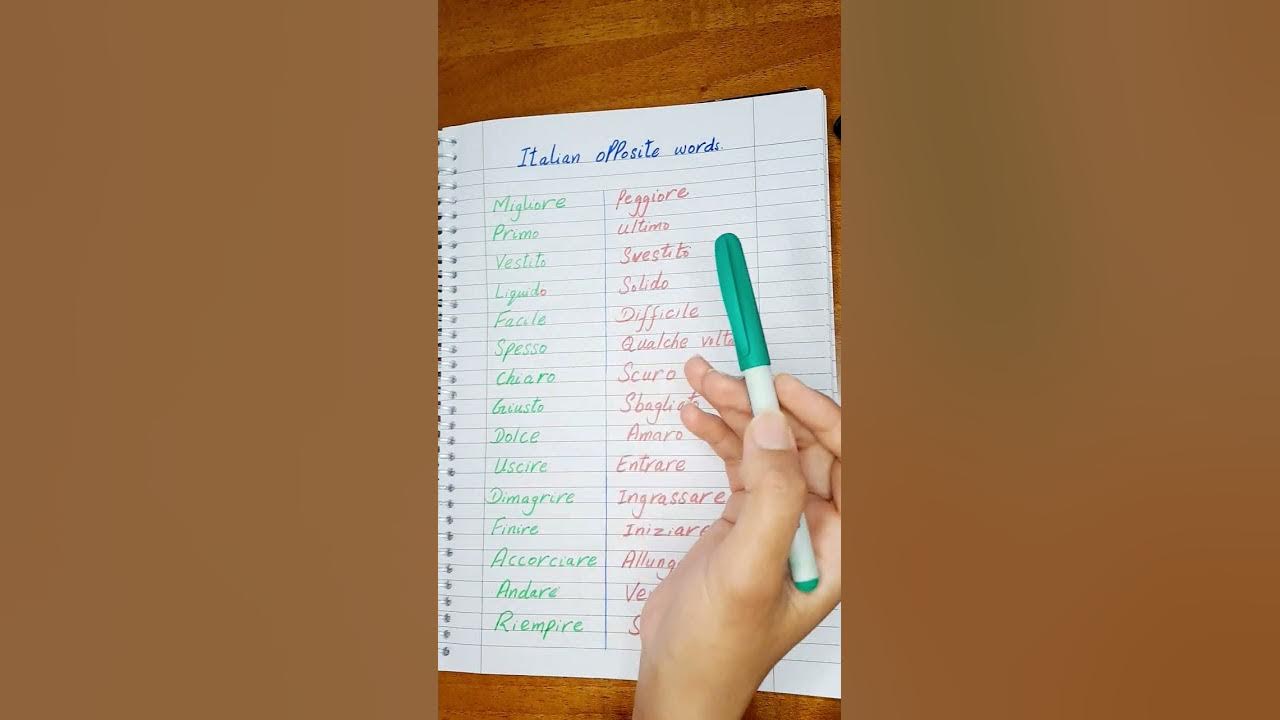 Italian opposite words.
Migliore Peggiore
Primo ultimo
Vestito Svestito
Liquido Solido
Facile Difficile
Spesso Qualche
Chiaro Scuro
Giusto
Dolce Amaro
Uscire Entrare
Dimagrire Ingrassare
Finire Iniziare
Accorciare
Andare
Riempire